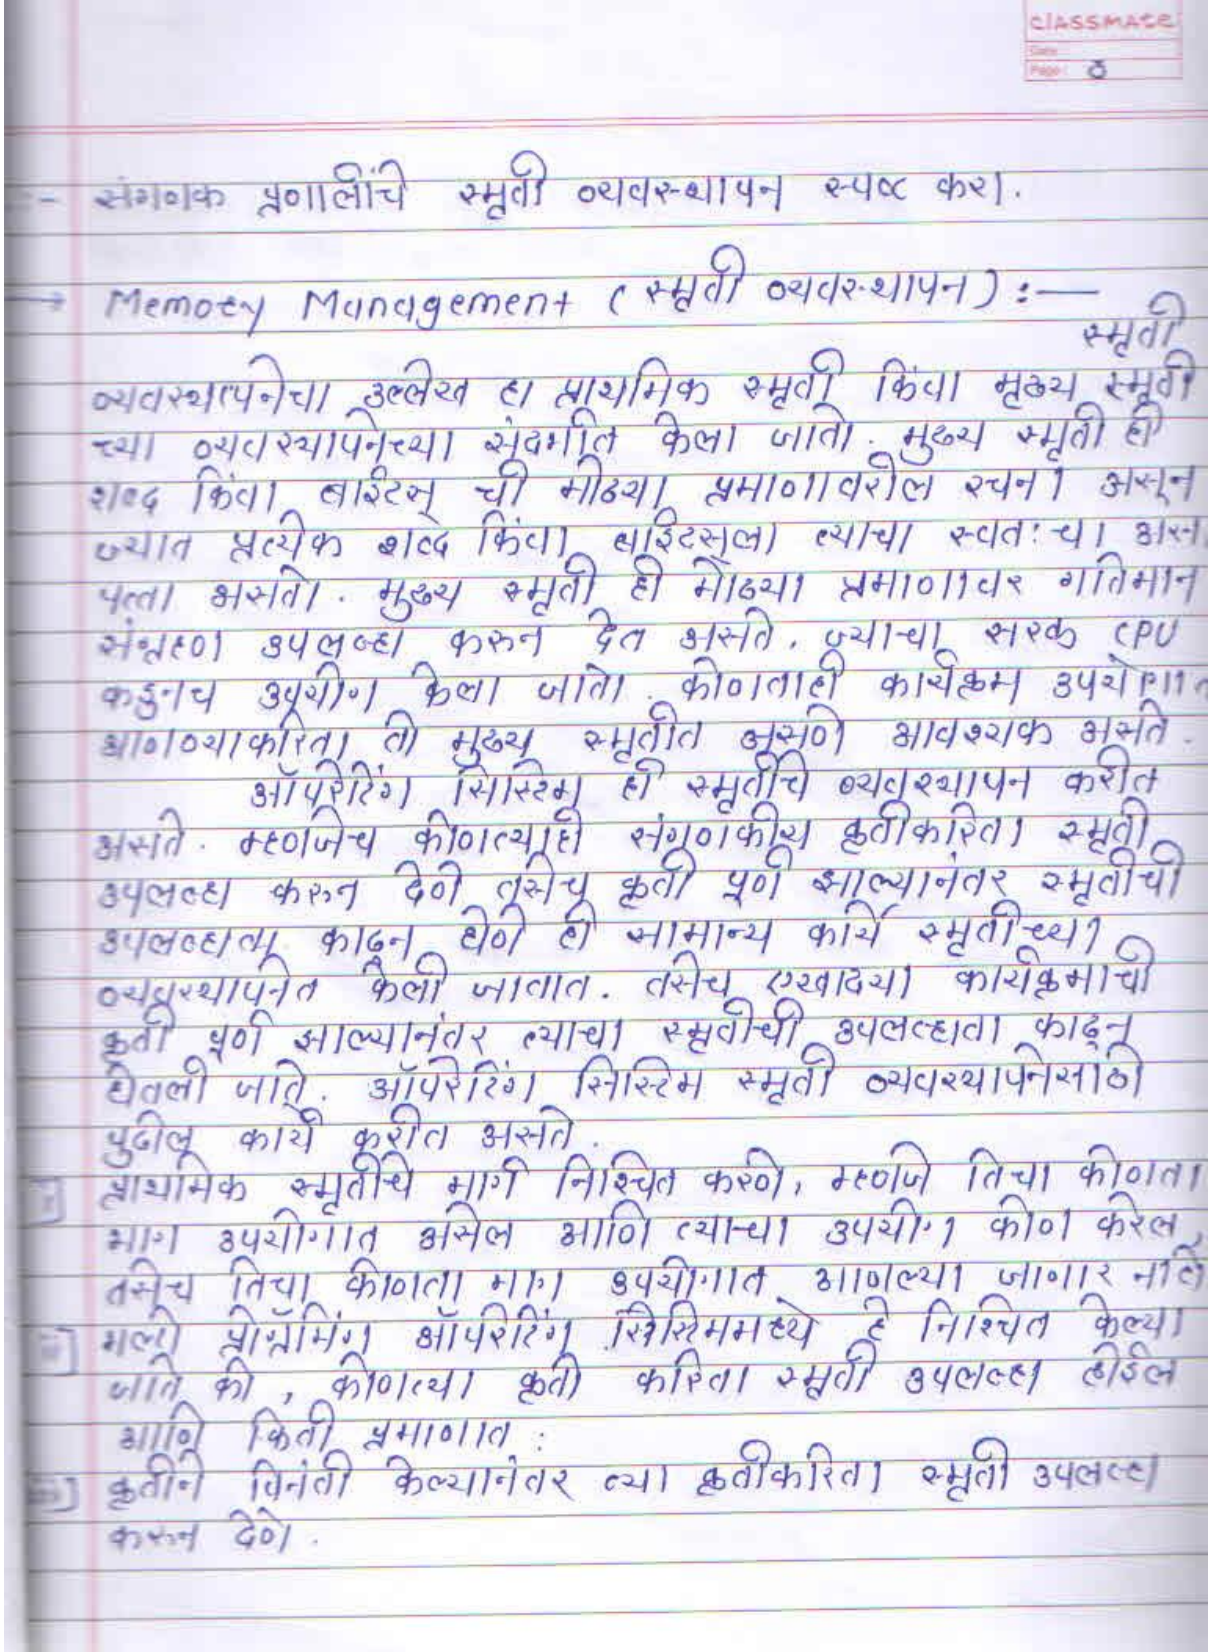 classmate
Date
Page
- संगणक प्रणालींचे स्मृती व्यवस्थापन स्पष्ट करा.
→ Memory Management (स्मृती व्यवस्थापन) :—
स्मृती
व्यवस्थापनेचा उल्लेख हा प्राथमिक स्मृती किंवा मुख्य स्मृती
च्या व्यवस्थापनेच्या संदर्भात केला जातो. मुख्य स्मृती ही
शब्द किंवा बाईटस् ची मोठ्या प्रमाणावरील रचना असून
ज्यात प्रत्येक शब्द किंवा बाईटस्ला त्याचा स्वतःचा असा
पत्ता असतो. मुख्य स्मृती ही मोठ्या प्रमाणावर गतिमान
संग्रहण उपलब्ध करून देत असते. ज्याचा सरळ CPU
कडुनच उपयोग केला जातो. कोणताही कार्यक्रम उपयोगात
आणण्याकरिता तो मुख्य स्मृतीत असणे आवश्यक असते.
ऑपरेटिंग सिस्टिम ही स्मृतीचे व्यवस्थापन करीत
असते. म्हणजेच कोणत्याही संगणकीय कृतीकरिता स्मृती
उपलब्ध करून देणे तसेच कृती पूर्ण झाल्यानंतर स्मृतीची
उपलब्धता काढून घेणे ही सामान्य कार्ये स्मृतीच्या
व्यवस्थापनेत केली जातात. तसेच एखादया कार्यक्रमाची
कृती पूर्ण झाल्यानंतर त्याचा स्मृतीची उपलब्धता काढून
घेतली जाते. ऑपरेटिंग सिस्टिम स्मृती व्यवस्थापनेसाठी
पुढील कार्य करीत असते.
प्राथमिक स्मृतीचे मार्ग निश्चित करणे, म्हणजे तिचा कोणता
भाग उपयोगात असेल आणि त्याचा उपयोग कोण करेल,
तसेच तिचा कोणता भाग उपयोगात आणल्या जाणार नाही
मल्टी प्रोग्रॅमिंग ऑपरेटिंग सिस्टिममध्ये हे निश्चित केल्या
जाते की, कोणत्या कृती करिता स्मृती उपलब्ध होईल
आणि किती प्रमाणात.
कृतीने विनंती केल्यानंतर त्या कृतीकरिता स्मृती उपलब्ध
करून देणे.